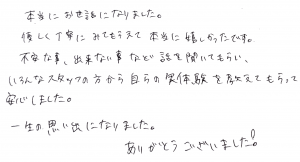 本当にお世話になりました。
優しく丁寧にみてもらえて本当に嬉しかったです。
不安な事、出来ない事など話を聞いてもらい、
いろんなスタッフの方から自らの実体験を教えてもらって
安心しました。
一生の思い出になりました。
ありがとうございました!